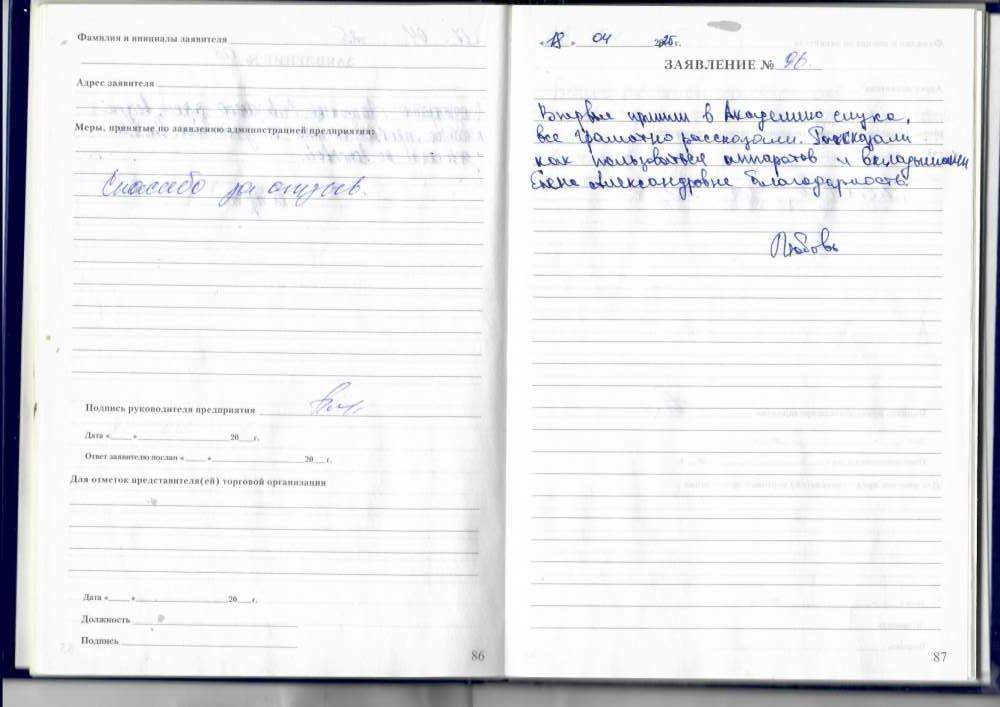 Фамилия и инициалы заявителя
Адрес заявителя
Меры, принятые по заявлению администрацией предприятия:
Спасибо за отзыв.
Подпись руководителя предприятия
Дата « » 20 г.
Ответ заявителю послан « » 20 г.
Для отметок представителя(ей) торговой организации
Дата « » 20 г.
Должность
Подпись
86
« 18 » 04 2025г.
ЗАЯВЛЕНИЕ № 96.
Впервые пришли в Академию слуха,
все грамотно рассказали. Рассказали
как пользоваться аппаратов и вкладышами
Елене Александровне благодарность.
Любовь
87